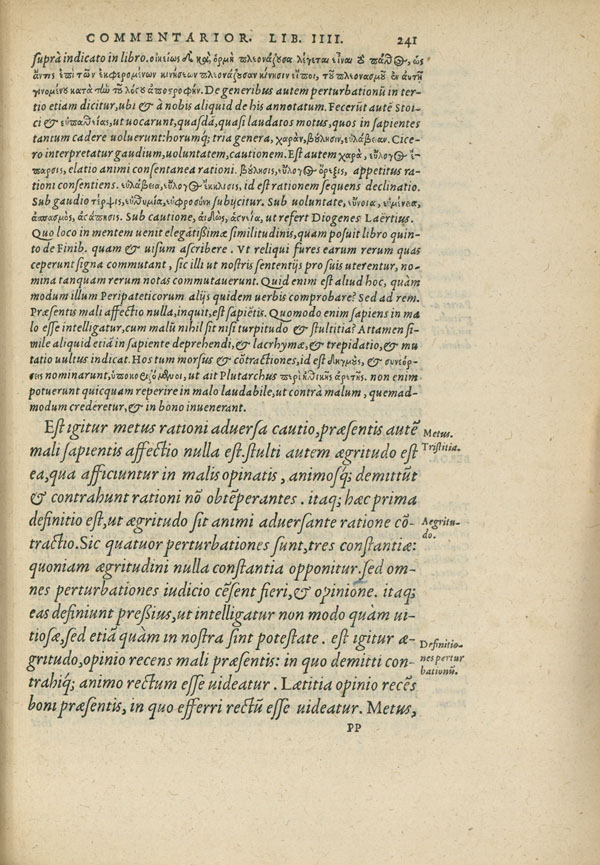 COMMENTARIOR. LIB. IIII. 241
suprà indicato in libro. οἰκείως δὲ καὶ ὁρμὴ πλεονάζουσα λέγεται εἶναι τὸ πάθος, ὡς
ἄν τις ἐπὶ τῶν ἐκφερομένων κινήσεων πλεονάζουσαν κίνησιν εἴποι, τοῦ πλεονασμοῦ ἐν αὐτῇ
γινομένου κατὰ τὴν τοῦ λόγου ἀποστροφήν. De generibus autem perturbationū in ter-
tio etiam dicitur, ubi & à nobis aliquid de his annotatum. Fecerūt autē Stoi-
ci & εὐπαθείας, ut uocarunt, quasdā, quasi laudatos motus, quos in sapientes
tantum cadere uoluerunt: horumq; tria genera, χαρὰν, βούλησιν, εὐλάβειαν. Cice-
ro interpretatur gaudium, uoluntatem, cautionem. Est autem χαρὰ, εὔλογος ἔ-
παρσις, elatio animi consentanea rationi. βούλησις, εὔλογος ὄρεξις, appetitus ra-
tioni consentiens. εὐλάβεια, εὔλογος ἔκκλισις, id est rationem sequens declinatio.
Sub gaudio τέρψις, εὐθυμία, εὐφροσύνη subijcitur. Sub uoluntate, εὔνοια, εὐμένεια,
ἀσπασμὸς, ἀγάπησις. Sub cautione, αἰδὼς, ἁγνεία, ut refert Diogenes Laërtius.
Quo loco in mentem uenit elegātißimæ similitudinis, quam posuit libro quin-
to de Finib. quam & uisum ascribere. Vt reliqui fures earum rerum quas
ceperunt signa commutant, sic illi ut nostris sententijs pro suis uterentur, no-
mina tanquam rerum notas commutauerunt. Quid enim est aliud hoc, quàm
modum illum Peripateticorum alijs quidem uerbis comprobare? Sed ad rem.
Præsentis mali affectio nulla, inquit, est sapiētis. Quomodo enim sapiens in ma
lo esse intelligatur, cum malū nihil sit nisi turpitudo & stultitia? Attamen si-
mile aliquid etiā in sapiente deprehendi, & lacrhymæ, & trepidatio, & mu
tatio uultus indicat. Hos tum morsus & cōtractiones, id est δηγμοὺς, & συνεόρ-
σεις nominarunt, ὑποκοριζόμενοι, ut ait Plutarchus περὶ ἠθικῆς ἀρετῆς. non enim
potuerunt quicquam reperire in malo laudabile, ut contrà malum, quemad-
modum crederetur, & in bono inuenerant.
Est igitur metus rationi aduersa cautio, præsentis autē
mali sapientis affectio nulla est. stulti autem ægritudo est
ea, qua afficiuntur in malis opinatis, animosq; demittūt
& contrahunt rationi nō obtēperantes. itaq; hæc prima
definitio est, ut ægritudo sit animi aduersante ratione cō-
tractio. Sic quatuor perturbationes sunt, tres constantiæ:
quoniam ægritudini nulla constantia opponitur. sed om-
nes perturbationes iudicio cēsent fieri, & opinione. itaq;
eas definiunt preßius, ut intelligatur non modo quàm ui-
tiosæ, sed etiā quàm in nostra sint potestate. est igitur æ-
gritudo, opinio recens mali præsentis: in quo demitti con-
trahiq; animo rectum esse uideatur. Lætitia opinio recēs
boni præsentis, in quo efferri rectū esse uideatur. Metus,
PP
Metus.
Tristitia.
Aegritu-
do.
Definitio-
nes pertur
bationū.